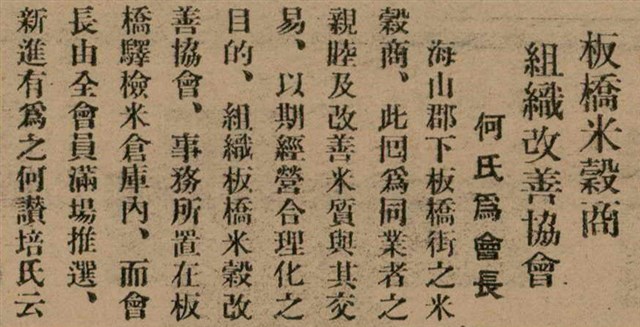 板橋米穀商
組織改善協會
何氏爲會長
海山郡下板橋街之米
穀商、此囘爲同業者之
親睦及改善米質與其交
易、以期經營合理化之
目的、組織板橋米穀改
善協會、事務所置在板
橋驛檢米倉庫內、而會
長由全會員滿場推選、
新進有爲之何讚培氏云